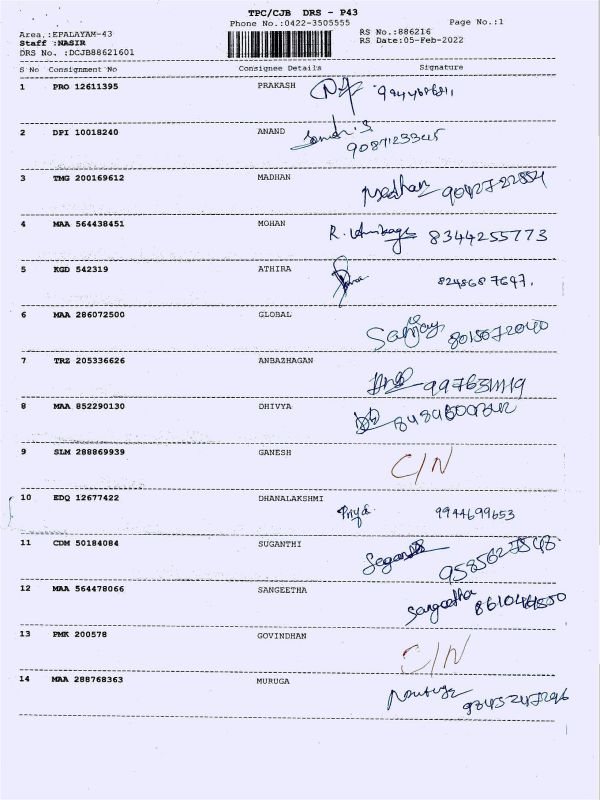 TPC/CJB DRS - P43
Phone No.:0422-3505555
Page No.:1
Area.:EPALAYAM-43
RS No.:886216
Staff :NASIR
RS Date:05-Feb-2022
DRS No. :DCJB88621601
S No Consignment No Consignee Details Signature
1 PRO 12611395 PRAKASH
2 DPI 10018240 ANAND
9087123345
3 TMG 200169612 MADHAN
Madhan 9042722884
4 MAA 564438451 MOHAN
R. 8344255773
5 KGD 542319 ATHIRA
8248687647.
6 MAA 286072500 GLOBAL
Sanjay 8015072040
7 TRZ 205336626 ANBAZHAGAN
8 MAA 852290130 DHIVYA
9 SLM 288869939 GANESH
C/N
10 EDQ 12677422 DHANALAKSHMI
Priya 9944699653
11 CDM 50184084 SUGANTHI
9585627848
12 MAA 564478066 SANGEETHA
Sangeetha
13 PMK 200578 GOVINDHAN
C/N
14 MAA 288768363 MURUGA